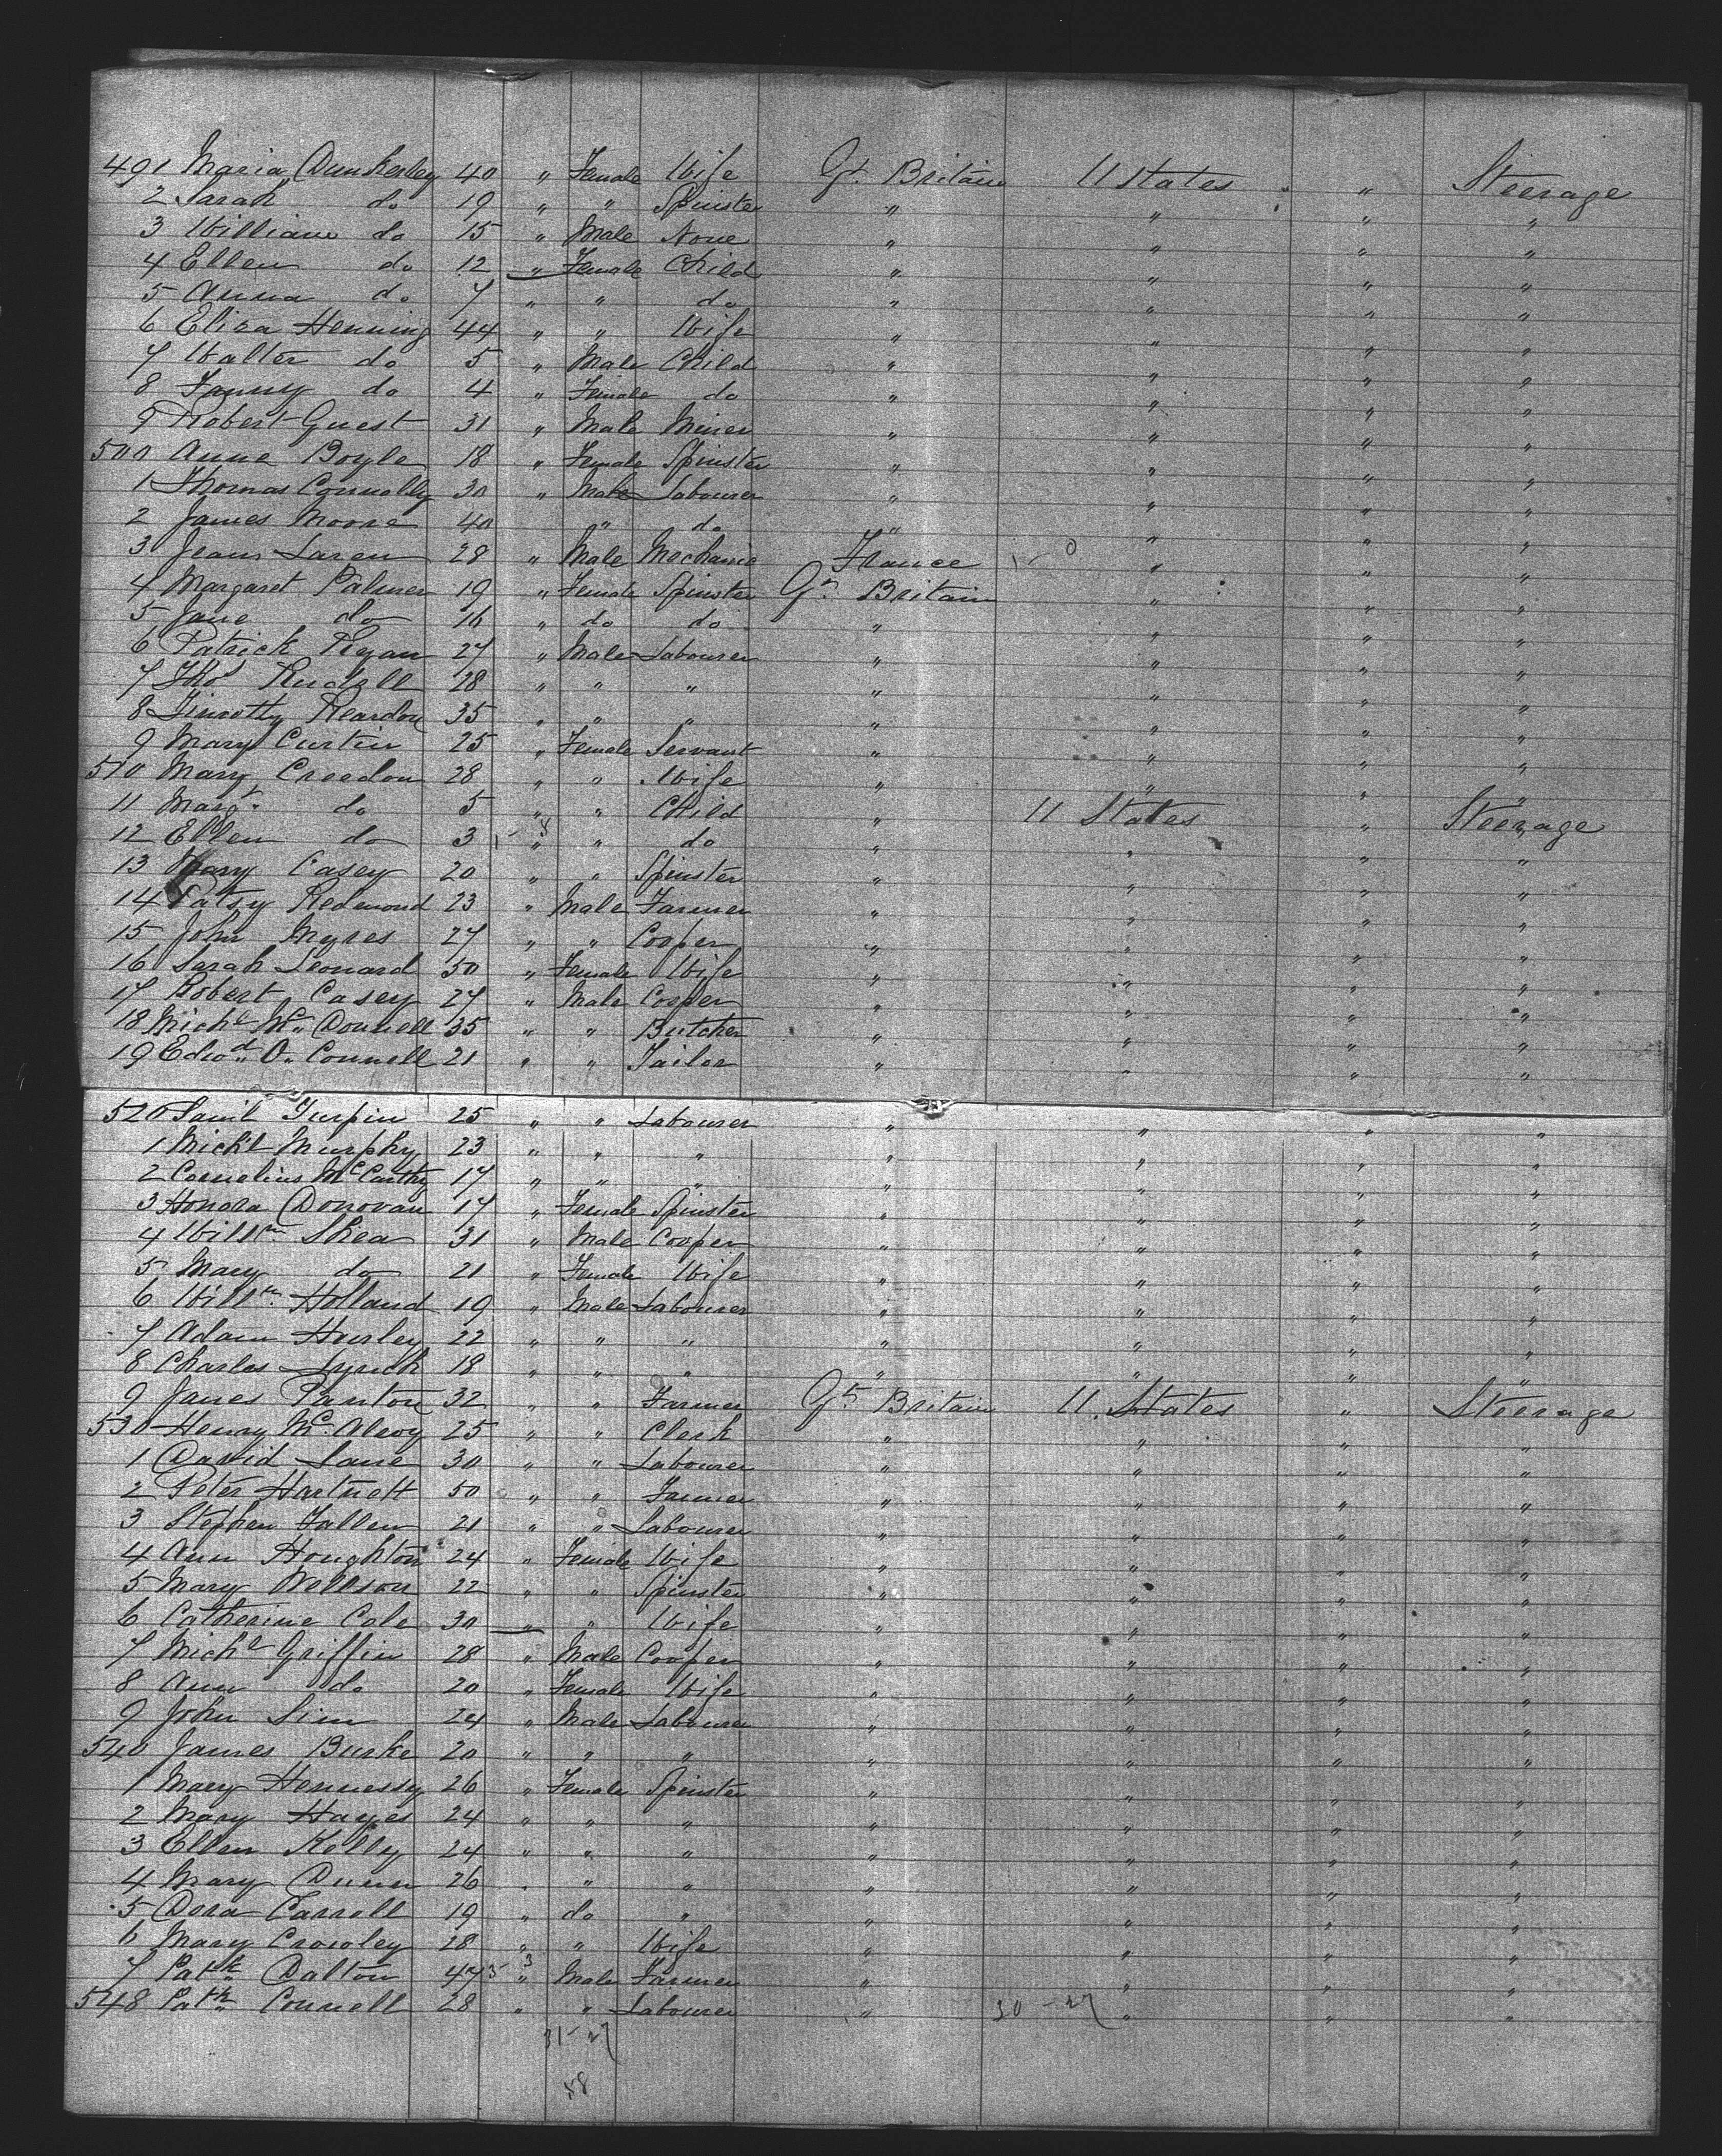 491 Maria Dunkerley 40 " Female Wife Gt. Britain U States " Steerage
2 Sarah do 19 " " Spinster " " " "
3 William do 15 " Male None " " " "
4 Ellen do 12 " Female Child " " " "
5 Anna do 7 " " do " " " "
6 Eliza Henning 44 " " Wife " " " "
7 Walter do 5 " Male Child " " " "
8 Fanny do 4 " Female do " " " "
9 Robert Guest 31 " Male Miner " " " "
500 Anne Boyle 18 " Female Spinster " " " "
1 Thomas Connolly 30 " Male Labourer " " " "
2 James Moore 40 " do " " " "
3 Jean Laren 28 " Male Mechanic France " " "
4 Margaret Palmer 19 " Female Spinster Gt. Britain " " "
5 Jane do 16 " do do " " " "
6 Patrick Ryan 27 " Male Labourer " " " "
7 Tho Rudell 28 " " " " " " "
8 Timothy Reardon 35 " " " " " " "
9 Mary Curtin 25 " Female Servant " " " "
510 Mary Creedon 28 " " Wife " " " "
11 Margt. do 5 " " Child " U States " Steerage
12 Ellen do 3 " " do " " " "
13 Mary Casey 20 " " Spinster " " " "
14 Patsy Redmond 23 " Male Farmer " " " "
15 John Myres 27 " " Cooper " " " "
16 Sarah Leonard 50 " Female Wife " " " "
17 Robert Casey 27 " Male Cooper " " " "
18 Michl Mc Donnell 35 " " Butcher " " " "
19 Edwd O. Connell 21 " " Tailor " " " "
520 Saml Turpin 25 " " Labourer " " " "
1 Michl Murphy 23 " " " " " " "
2 Cornelius McCarthy 17 " " " " " " "
3 Honora Donovan 17 " Female Spinster " " " "
4 Willm Shea 31 " Male Cooper " " " "
5 Mary do 21 " Female Wife " " " "
6 Willm. Holland 19 " Male Labourer " " " "
7 Adam Hurley 22 " " " " " " "
8 Charles Lynch 18 " " " " " " "
9 James Panton 32 " " Farmer Gt Britain U. States " Steerage
530 Henry Mc. Alevoy 25 " " Clerk " " " "
1 David Lane 30 " " Labourer " " " "
2 Peter Hartnett 50 " " Farmer " " " "
3 Stephen Fallen 21 " " Labourer " " " "
4 Ann Houghton 24 " Female Wife " " " "
5 Mary Wellson 22 " " Spinster " " " "
6 Catherine Cole 30 " " Wife " " " "
7 Michl Griffin 28 " Male Cooper " " " "
8 Ann do 20 " Female Wife " " " "
9 John Sim 24 " Male Labourer " " " "
540 James Burke 20 " " " " " " "
1 Mary Hennessy 26 " Female Spinster " " " "
2 Mary Hayes 24 " " " " " " "
3 Ellen Kelly 24 " " " " " " "
4 Mary Dunn 26 " " " " " " "
5 Dora Carroll 19 " do " " " " "
6 Mary Crowley 28 " " Wife " " " "
7 Patk Dalton 47 " Male Farmer " " " "
548 Patk Connell 28 " " Labourer " 30-27 " " "
31-27
58